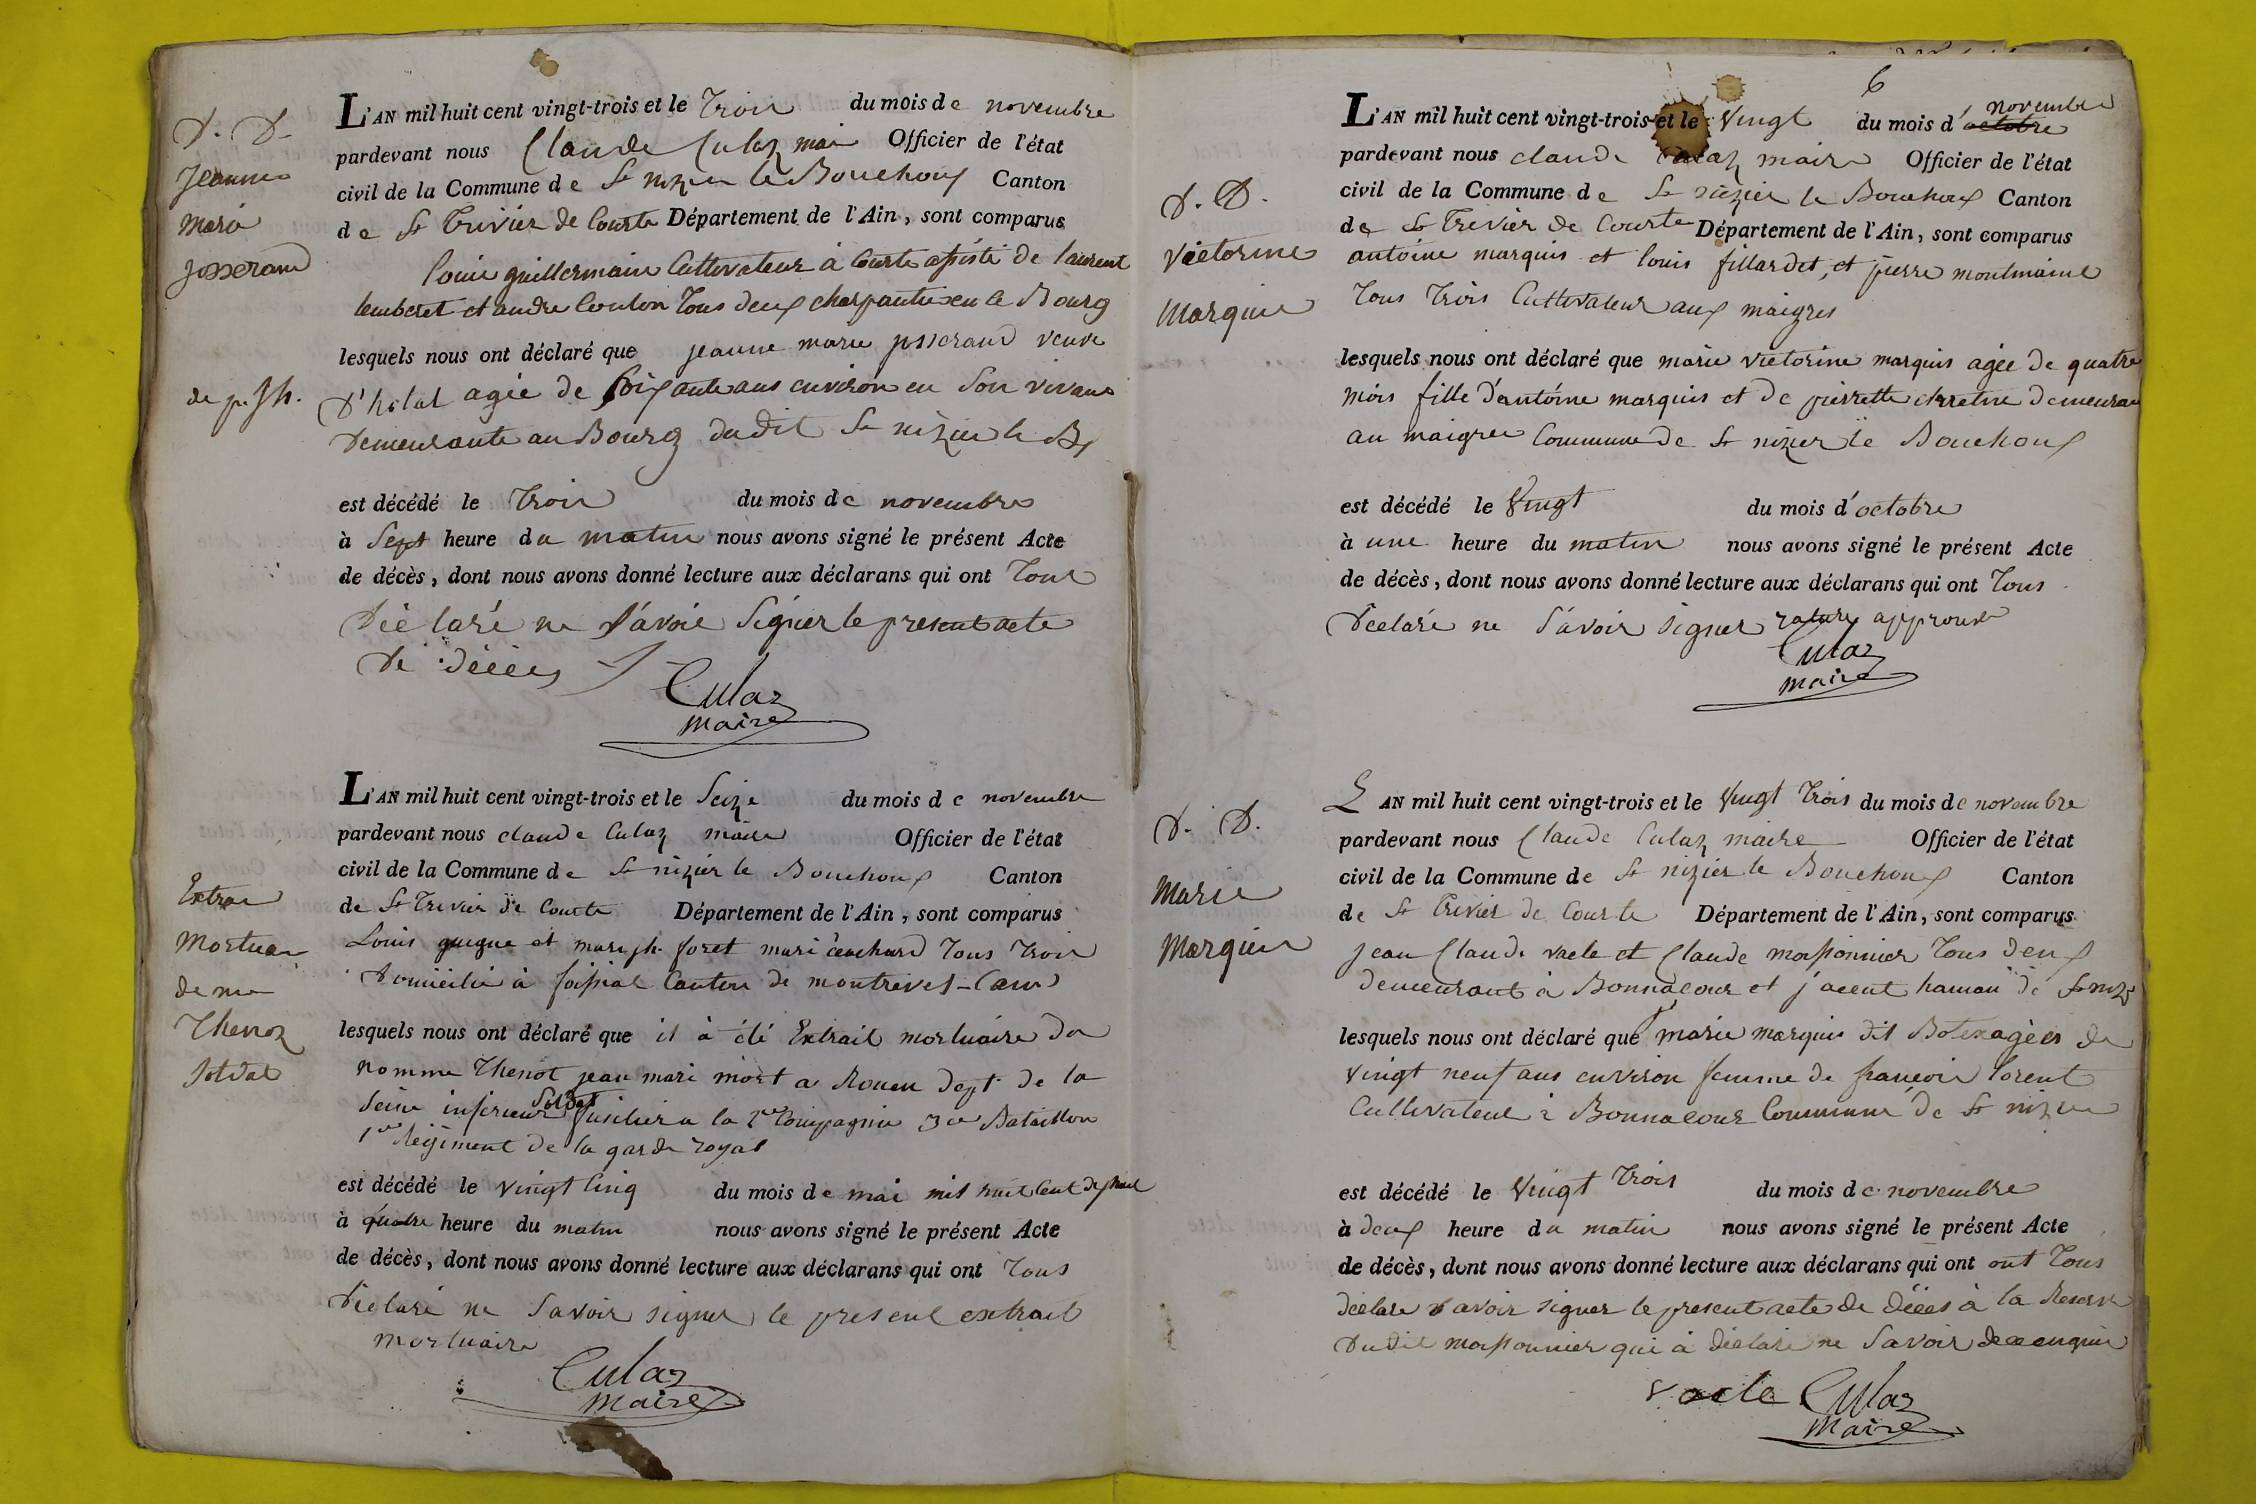 D. D.
Jeanne
Marie
Josserand
de p. Jh.
L'AN mil huit cent vingt-trois et le Trois du mois de novembre
pardevant nous Claude Culaz mair Officier de l'état
civil de la Commune de St nizier le Bouchoux Canton
de St Trivier de Courte Département de l'Ain, sont comparus
louis guillermain Cultivateur à Courte assisté de laurent
et andre Coulon Tous deux charpantier en le Bourg
lesquels nous ont déclaré que jeanne marie josserand veuve
agée de soixante ans environ en son vivant
Demeurante au Bourg dudit St nizier le Bx
est décédé le Trois du mois de novembre
à Sept heure du matin nous avons signé le présent Acte
de décès, dont nous avons donné lecture aux déclarans qui ont Tous
Déclaré ne savoir Signer le present acte
De décès
Culaz
maire
Extrai
Mortuair
de me
Thenoz
Soldat
L'AN mil huit cent vingt-trois et le Seize du mois de novembre
pardevant nous claude Culaz maire Officier de l'état
civil de la Commune de St nizier le Bouchoux Canton
de St Trivier de Courte Département de l'Ain, sont comparus
Louis gugue et mari jh. foret mari Tous Trois
Domicilié à foissiat Canton de montrevel (ain)
lesquels nous ont déclaré que il à été Extrait mortuaire du
nomme Thenot jean mari mort a Rouen dept. de la
Seine inferieur Soldat fusilier a la 2e Compagnie 3e Bataillon
1er Regiment de la garde royal
est décédé le vingt Cinq du mois de mai mil huit Cent dix huit
à quatre heure du matin nous avons signé le présent Acte
de décès, dont nous avons donné lecture aux déclarans qui ont Tous
Déclaré ne Savoir signer le present extrait
mortuaire
Culaz
maire
6
D. D.
Victorine
Marquis
L'AN mil huit cent vingt-trois et le Vingt du mois d'octobre novembre
pardevant nous claude Culaz maire Officier de l'état
civil de la Commune de St nizier le Bouchoux Canton
de St Trivier de Courte Département de l'Ain, sont comparus
antoine marquis et louis fillardet, et pierre montmain
Tous Trois Cultivateur aux maigres
lesquels nous ont déclaré que marie victorine marquis agée de quatre
mois fille d'antoine marquis et de pierrette demeurant
au maigres Commune de St nizier le Bouchoux
est décédé le Vingt du mois d'octobre
à une heure du matin nous avons signé le présent Acte
de décès, dont nous avons donné lecture aux déclarans qui ont Tous
Déclaré ne Savoir signer rature approuvé
Culaz
maire
D. D.
Marie
Marquis
L'AN mil huit cent vingt-trois et le Vingt Trois du mois de novembre
pardevant nous Claude Culaz maire Officier de l'état
civil de la Commune de St nizier le Bouchoux Canton
de St Trivier de Courte Département de l'Ain, sont comparus
jean Claude vacle et Claude massonnier Tous deux
demeurant à Bonnacour et hamau de St niz
lesquels nous ont déclaré que marie marquis dit agées de
vingt neuf ans environ femme de françois lorent
Cultivateur à Bonnacour Commune de St nizier
est décédé le Vingt Trois du mois de novembre
à deux heure du matin nous avons signé le présent Acte
de décès, dont nous avons donné lecture aux déclarans qui ont ont Tous
declare savoir signer le present acte de décès à la Reserve
Dudit massonnier qui à déclaré ne Savoir de ce enquis
vacle Culaz
maire